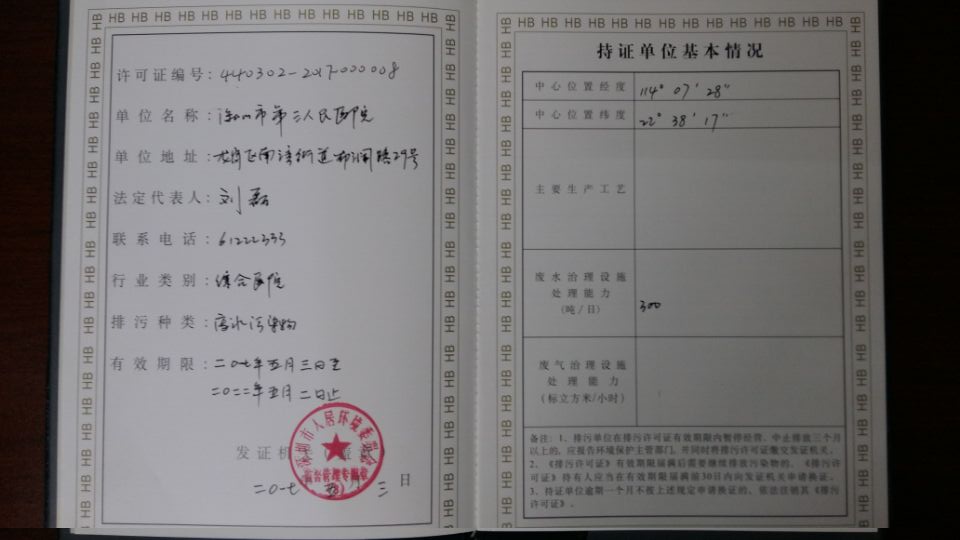 许可证编号：440302-2017-000008
单位名称：深圳市第三人民医院
单位地址：龙岗区南湾街道布澜路29号
法定代表人：刘磊
联系电话：61222333
行业类别：综合医院
排污种类：废水污染物
有效期限：二〇一七年五月三日至
二〇二二年五月二日止
发证机关（盖章）
深圳市人居环境委员会
二〇一七 五月 三 日
持证单位基本情况
中心位置经度 114° 07′ 28″
中心位置纬度 22° 38′ 17″
主要生产工艺
废水治理设施
处理能力
(吨/日) 300
废气治理设施
处理能力
(标立方米/小时)
备注：1、排污单位在排污许可证有效期限内暂停经营、中止排放三个月
以上的，应报告环境保护主管部门，并同时将排污许可证缴交发证机关。
2、《排污许可证》有效期限届满后需要继续排放污染物的，《排污许可证》
持有人应当在有效期限届满前30日内向发证机关申请换证。
3、持证单位逾期一个月不按上述规定申请换证的，依法注销其《排污
许可证》。